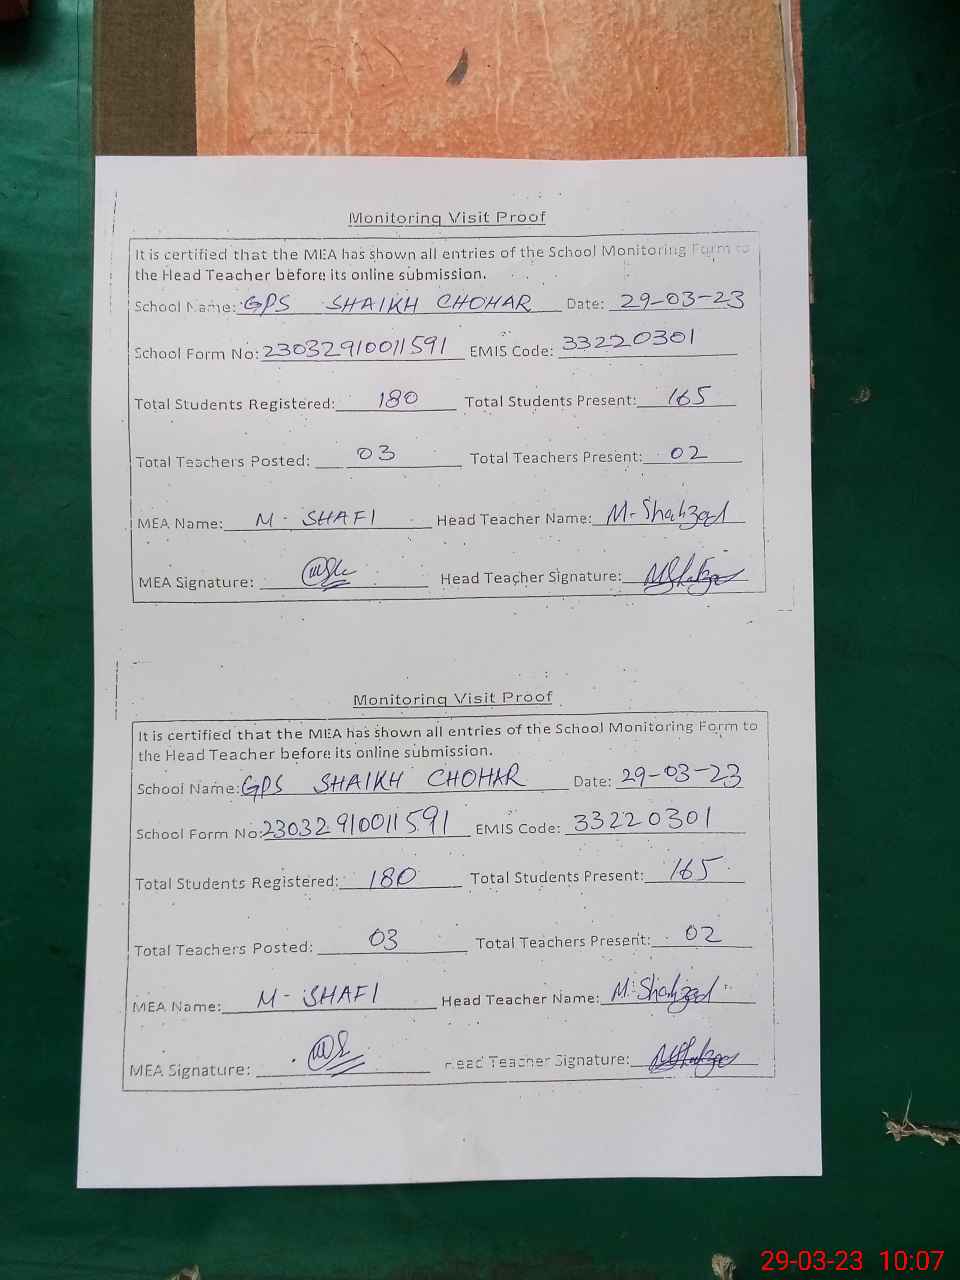 Monitoring Visit Proof
It is certified that the MEA has shown all entries of the School Monitoring Form to
the Head Teacher before its online submission.
School Name: GPS SHAIKH CHOHAR Date: 29-03-23
School Form No: 23032910011591 EMIS Code: 33220301
Total Students Registered: 180 Total Students Present: 165
Total Teachers Posted: 03 Total Teachers Present: 02
MEA Name: M - SHAFI Head Teacher Name: M-Shahzad
MEA Signature: Head Teacher Signature:
Monitoring Visit Proof
It is certified that the MEA has shown all entries of the School Monitoring Form to
the Head Teacher before its online submission.
School Name: GPS SHAIKH CHOHAR Date: 29-03-23
School Form No: 23032910011591 EMIS Code: 33220301
Total Students Registered: 180 Total Students Present: 165
Total Teachers Posted: 03 Total Teachers Present: 02
MEA Name: M - SHAFI Head Teacher Name: M-Shahzad
MEA Signature: Head Teacher Signature:
29-03-23 10:07